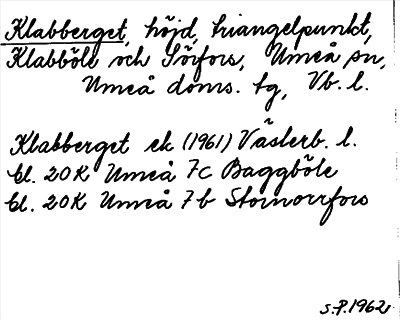 Klabberget, höjd, triangelpunkt,
Klabböle och Sörfors, Umeå sn,
Umeå doms. tg, Vb. l.
Klabberget ek (1961) Västerb. l.
bl. 20K Umeå 7c Baggböle
bl. 20K Umeå 7b Stornorrfors
S.P. 1962